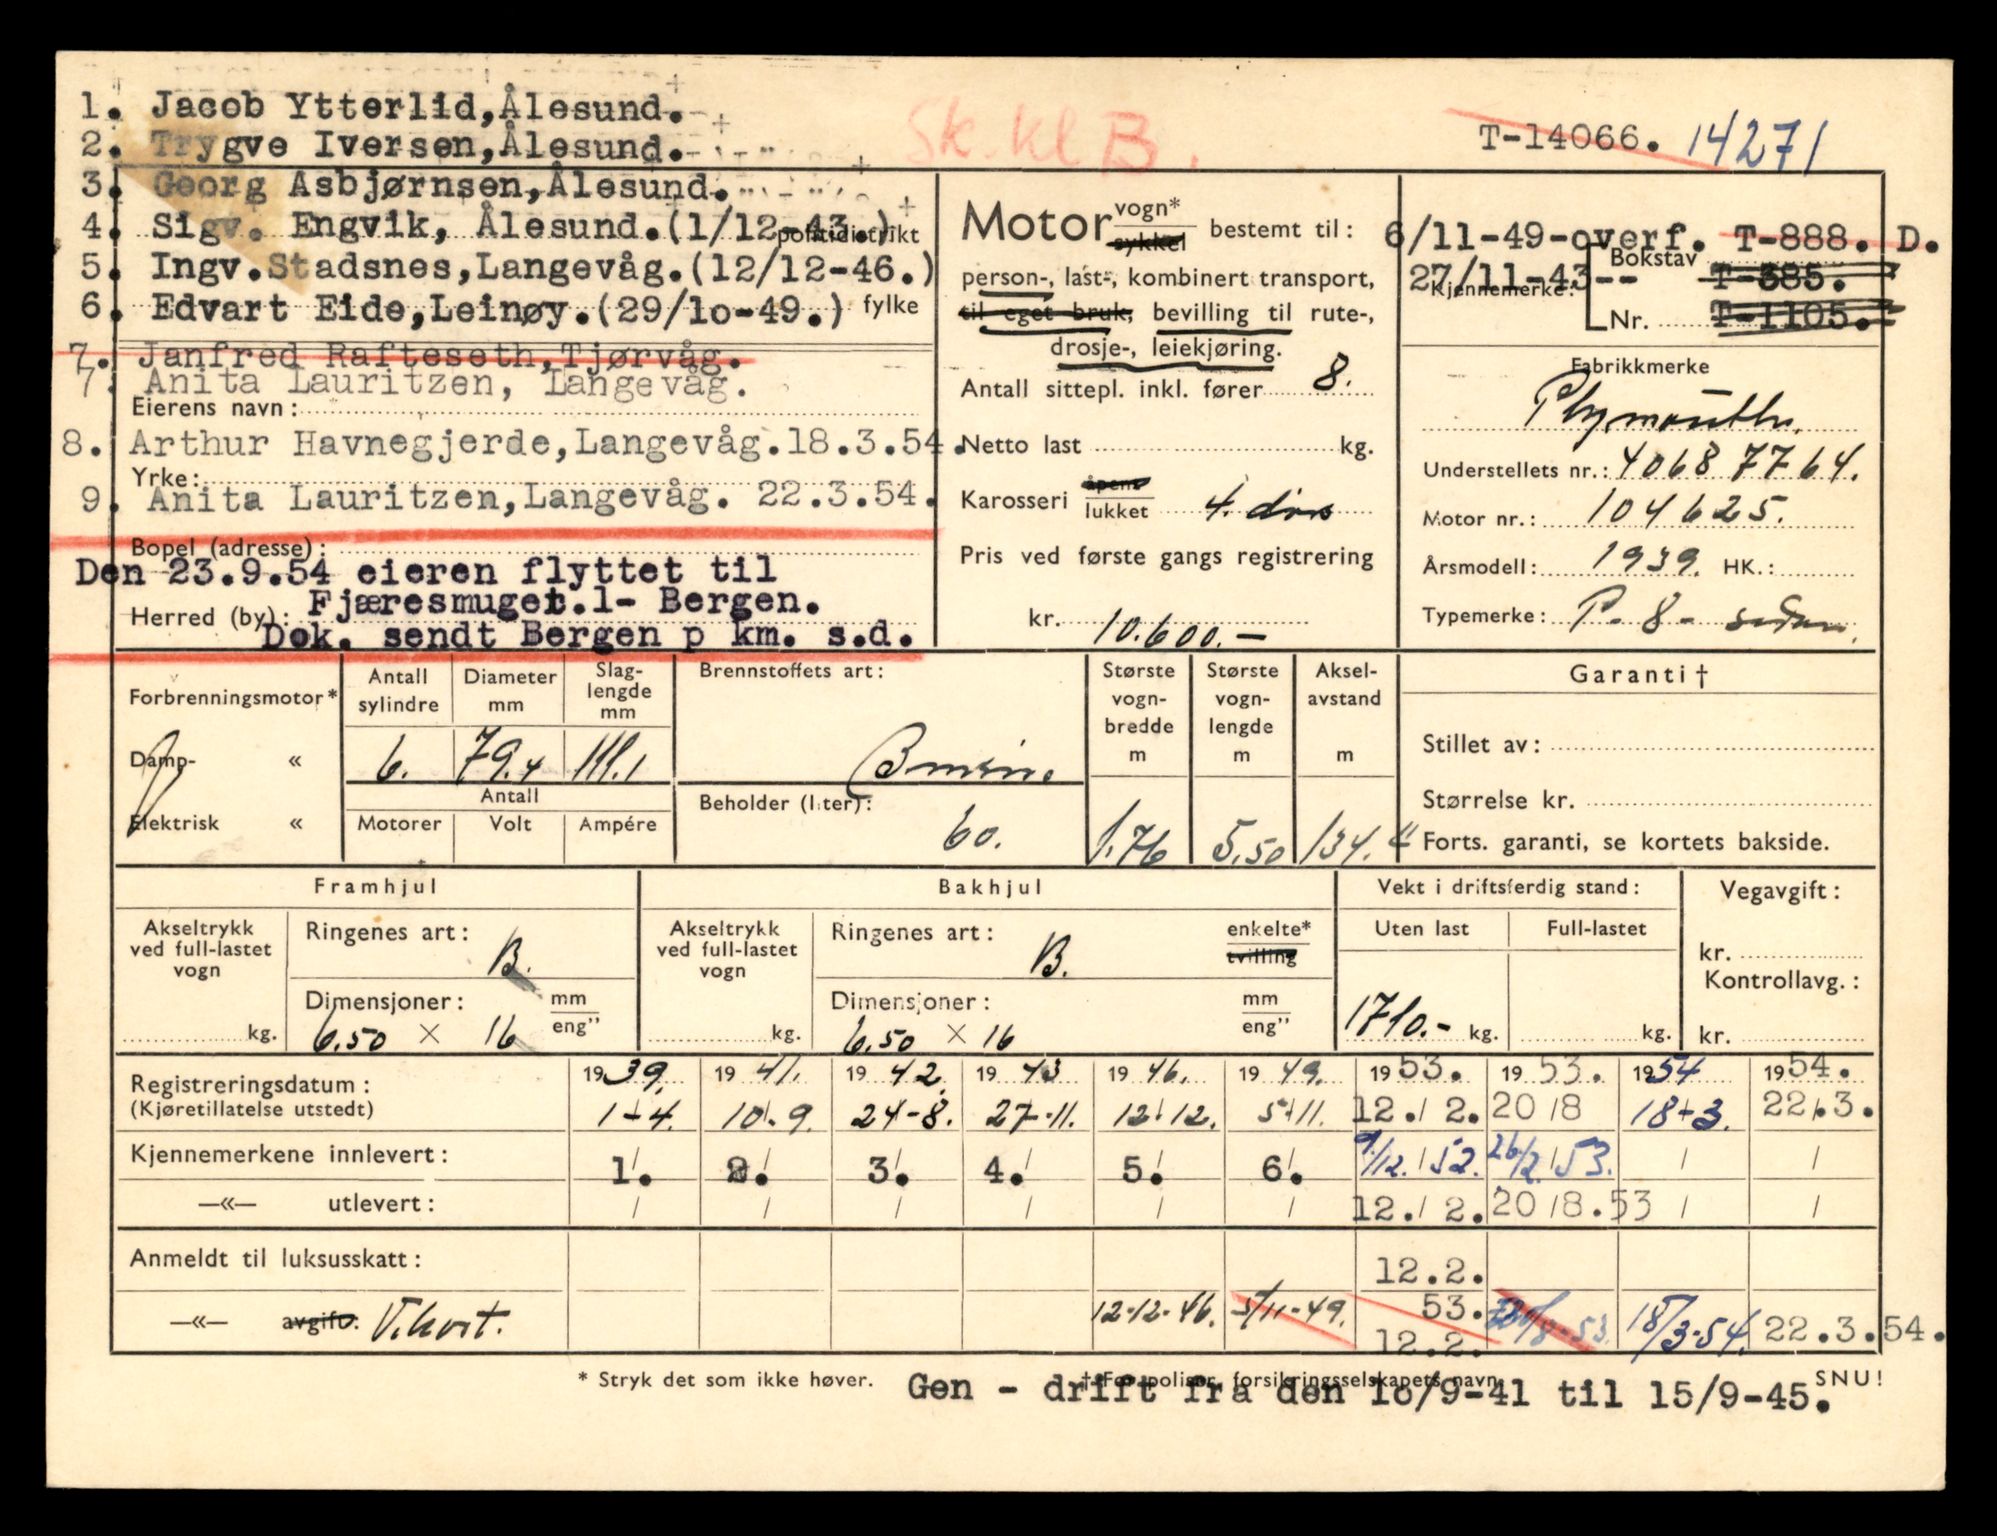 1. Jacob Ytterlid, Ålesund.
2. Trygve Iversen, Ålesund.
3. Georg Asbjørnsen, Ålesund.
4. Sigv. Engvik, Ålesund. (1/12-43.)
politidistrikt
5. Ingv. Stadsnes, Langevåg. (12/12-46.)
6. Edvart Eide, Leinøy. (29/10-49.)
fylke
7. Janfred Rafteseth, Tjørvåg.
7. Anita Lauritzen, Langevåg.
Eierens navn:
8. Arthur Havnegjerde, Langevåg. 18.3.54.
Yrke:
9. Anita Lauritzen, Langevåg. 22.3.54.
Bopel (adresse):
Den 23.9.54 eieren flyttet til
Fjæresmuget. 1- Bergen.
Herred (by):
Dok. sendt Bergen p km. s.d.
Sk. kl B.
T-14066. 14271
Motor vogn* sykkel bestemt til:
person-, last-, kombinert transport,
til eget bruk, bevilling til rute-,
drosje-, leiekjøring.
Antall sittepl. inkl. fører 8.
Netto last kg.
Karosseri åpent lukket 4. dørs
Pris ved første gangs registrering
kr. 10.600.-
6/11-49-overf. T-888. D.
Bokstav
27/11-43-- T-385.
Kjennemerke:
Nr. T-1105.
Fabrikkmerke
Plymouth.
Understellets nr.: 4068 77 64.
Motor nr.: 104625.
Årsmodell: 1939. HK.:
Typemerke: P-8- sedan.
Forbrenningsmotor*
Damp- «
Elektrisk «
Antall sylindre 6.
Diameter mm 79.4
Slaglengde mm 111.1
Antall
Motorer Volt Ampére
Brennstoffets art:
Bensin.
Beholder (liter):
60.
Største vognbredde m 1.76
Største vognlengde m 5.50
Akselavstand m 134."
Garanti†
Stillet av:
Størrelse kr.
Forts. garanti, se kortets bakside.
Framhjul
Akseltrykk ved full-lastet vogn kg.
Ringenes art: B.
Dimensjoner: mm eng”
6.50 × 16
Bakhjul
Akseltrykk ved full-lastet vogn kg.
Ringenes art: B. enkelte* tvilling
Dimensjoner: mm eng”
6.50 × 16
Vekt i driftsferdig stand:
Uten last Full-lastet
1710.- kg. kg.
Vegavgift:
kr.
Kontrollavg.:
kr.
Registreringsdatum: 1939. 1941. 1942. 1943 1946. 1949. 1953. 1953. 1954 1954.
(Kjøretillatelse utstedt) 1-4. 10/.9. 24-8. 27-11. 12/12. 5/11. 12./2. 20/8 18/3. 22/.3.
Kjennemerkene innlevert: 1. 2. 3. 4. 5. 6. 9/12./52. 26/2/53. / /
—«— utlevert: / / / / / / 12./2. 20/8.53 / /
Anmeldt til luksusskatt: 12.2.
—«— avgift: V.kort. 12-12-46. 5/11-49. 53. 18/3-54. 22.3.54.
12.2.
* Stryk det som ikke høver. † For poliser, forsikringsselskapets navn. SNU!
Gen - drift fra den 10/9-41 til 15/9-45.